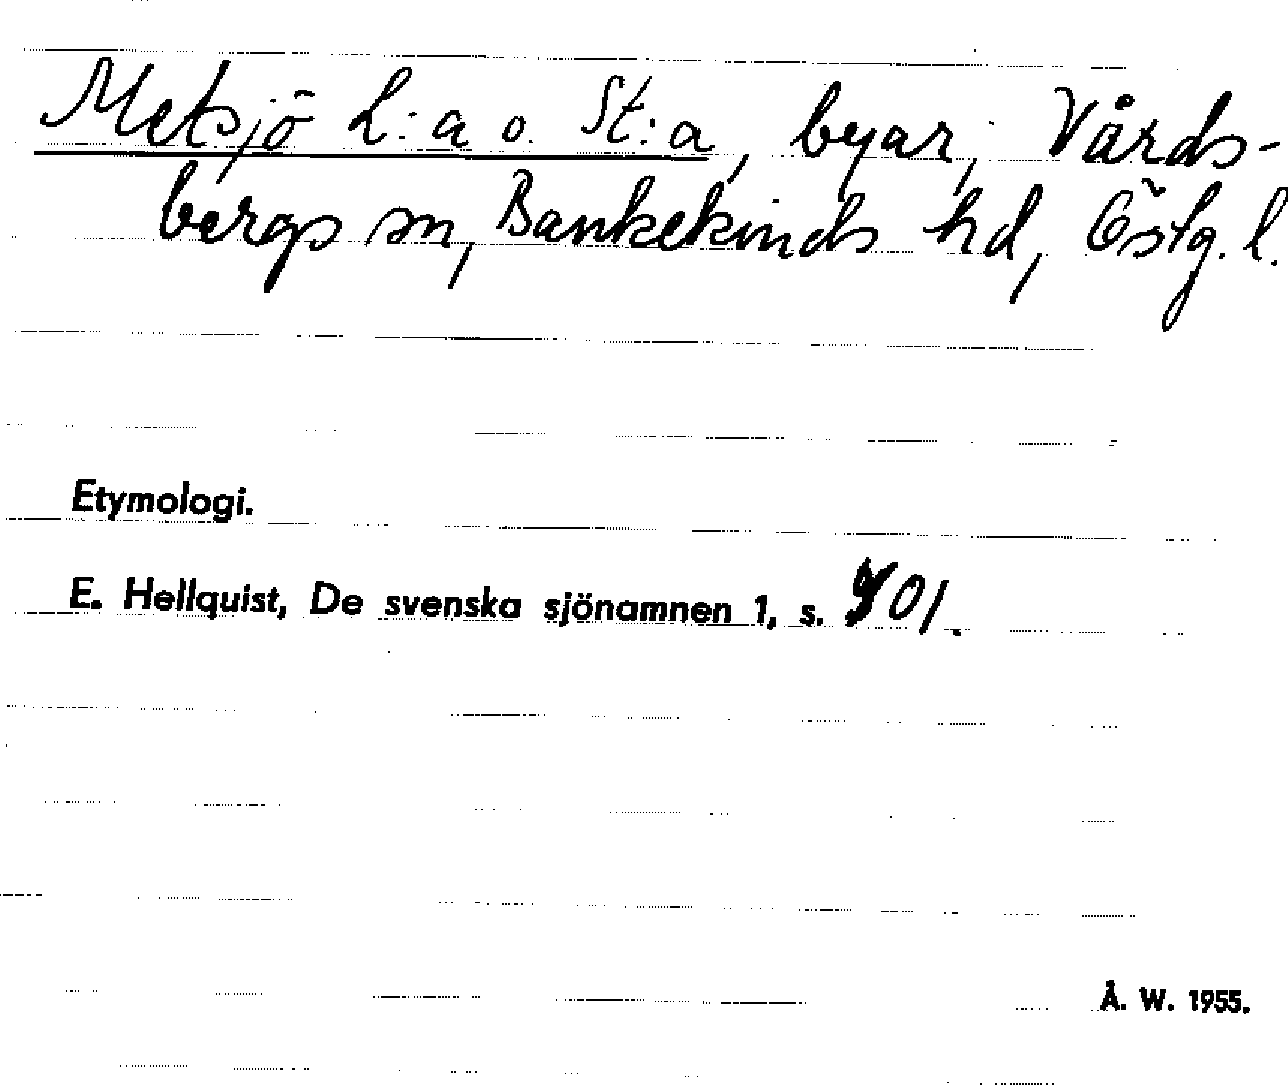 Metsjö L:a o. St:a, byar, Vårds-
bergs sn, Bankekinds hd, Östg. l.
Etymologi.
E. Hellquist, De svenska sjönamnen 1, s. 401.
Å. W. 1955.